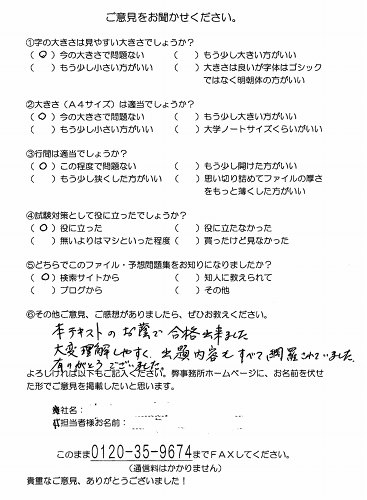 ご意見をお聞かせください。
①字の大きさは見やすい大きさでしょうか？
(○)今の大きさで問題ない ( )もう少し大きい方がいい
( )もう少し小さい方がいい ( )大きさは良いが字体はゴシック
ではなく明朝体の方がいい
②大きさ（A4サイズ）は適当でしょうか？
(○)今の大きさで問題ない ( )もう少し大きい方がいい
( )もう少し小さい方がいい ( )大学ノートサイズくらいがいい
③行間は適当でしょうか？
(○)この程度で問題ない ( )もう少し開けた方がいい
( )もう少し狭くした方がいい ( )思い切り詰めてファイルの厚さ
をもっと薄くした方がいい
④試験対策として役に立ったでしょうか？
(○)役に立った ( )役に立たなかった
( )無いよりはマシといった程度 ( )買ったけど見なかった
⑤どちらでこのファイル・予想問題集をお知りになりましたか？
(○)検索サイトから ( )知人に教えられて
( )ブログから ( )その他
⑥その他ご意見、ご感想がありましたら、ぜひお教えください。
本テキストのお蔭で合格出来ました
大変理解しやすく、出題内容もすべて網羅されていました。
ありがとうございました。
よろしければ以下もご記入ください。弊事務所ホームページに、お名前を伏せ
た形でご意見を掲載したいと思います。
貴社名：
ご担当者様お名前：
このまま0120-35-9674までFAXしてください。
（通信料はかかりません）
貴重なご意見、ありがとうございました！